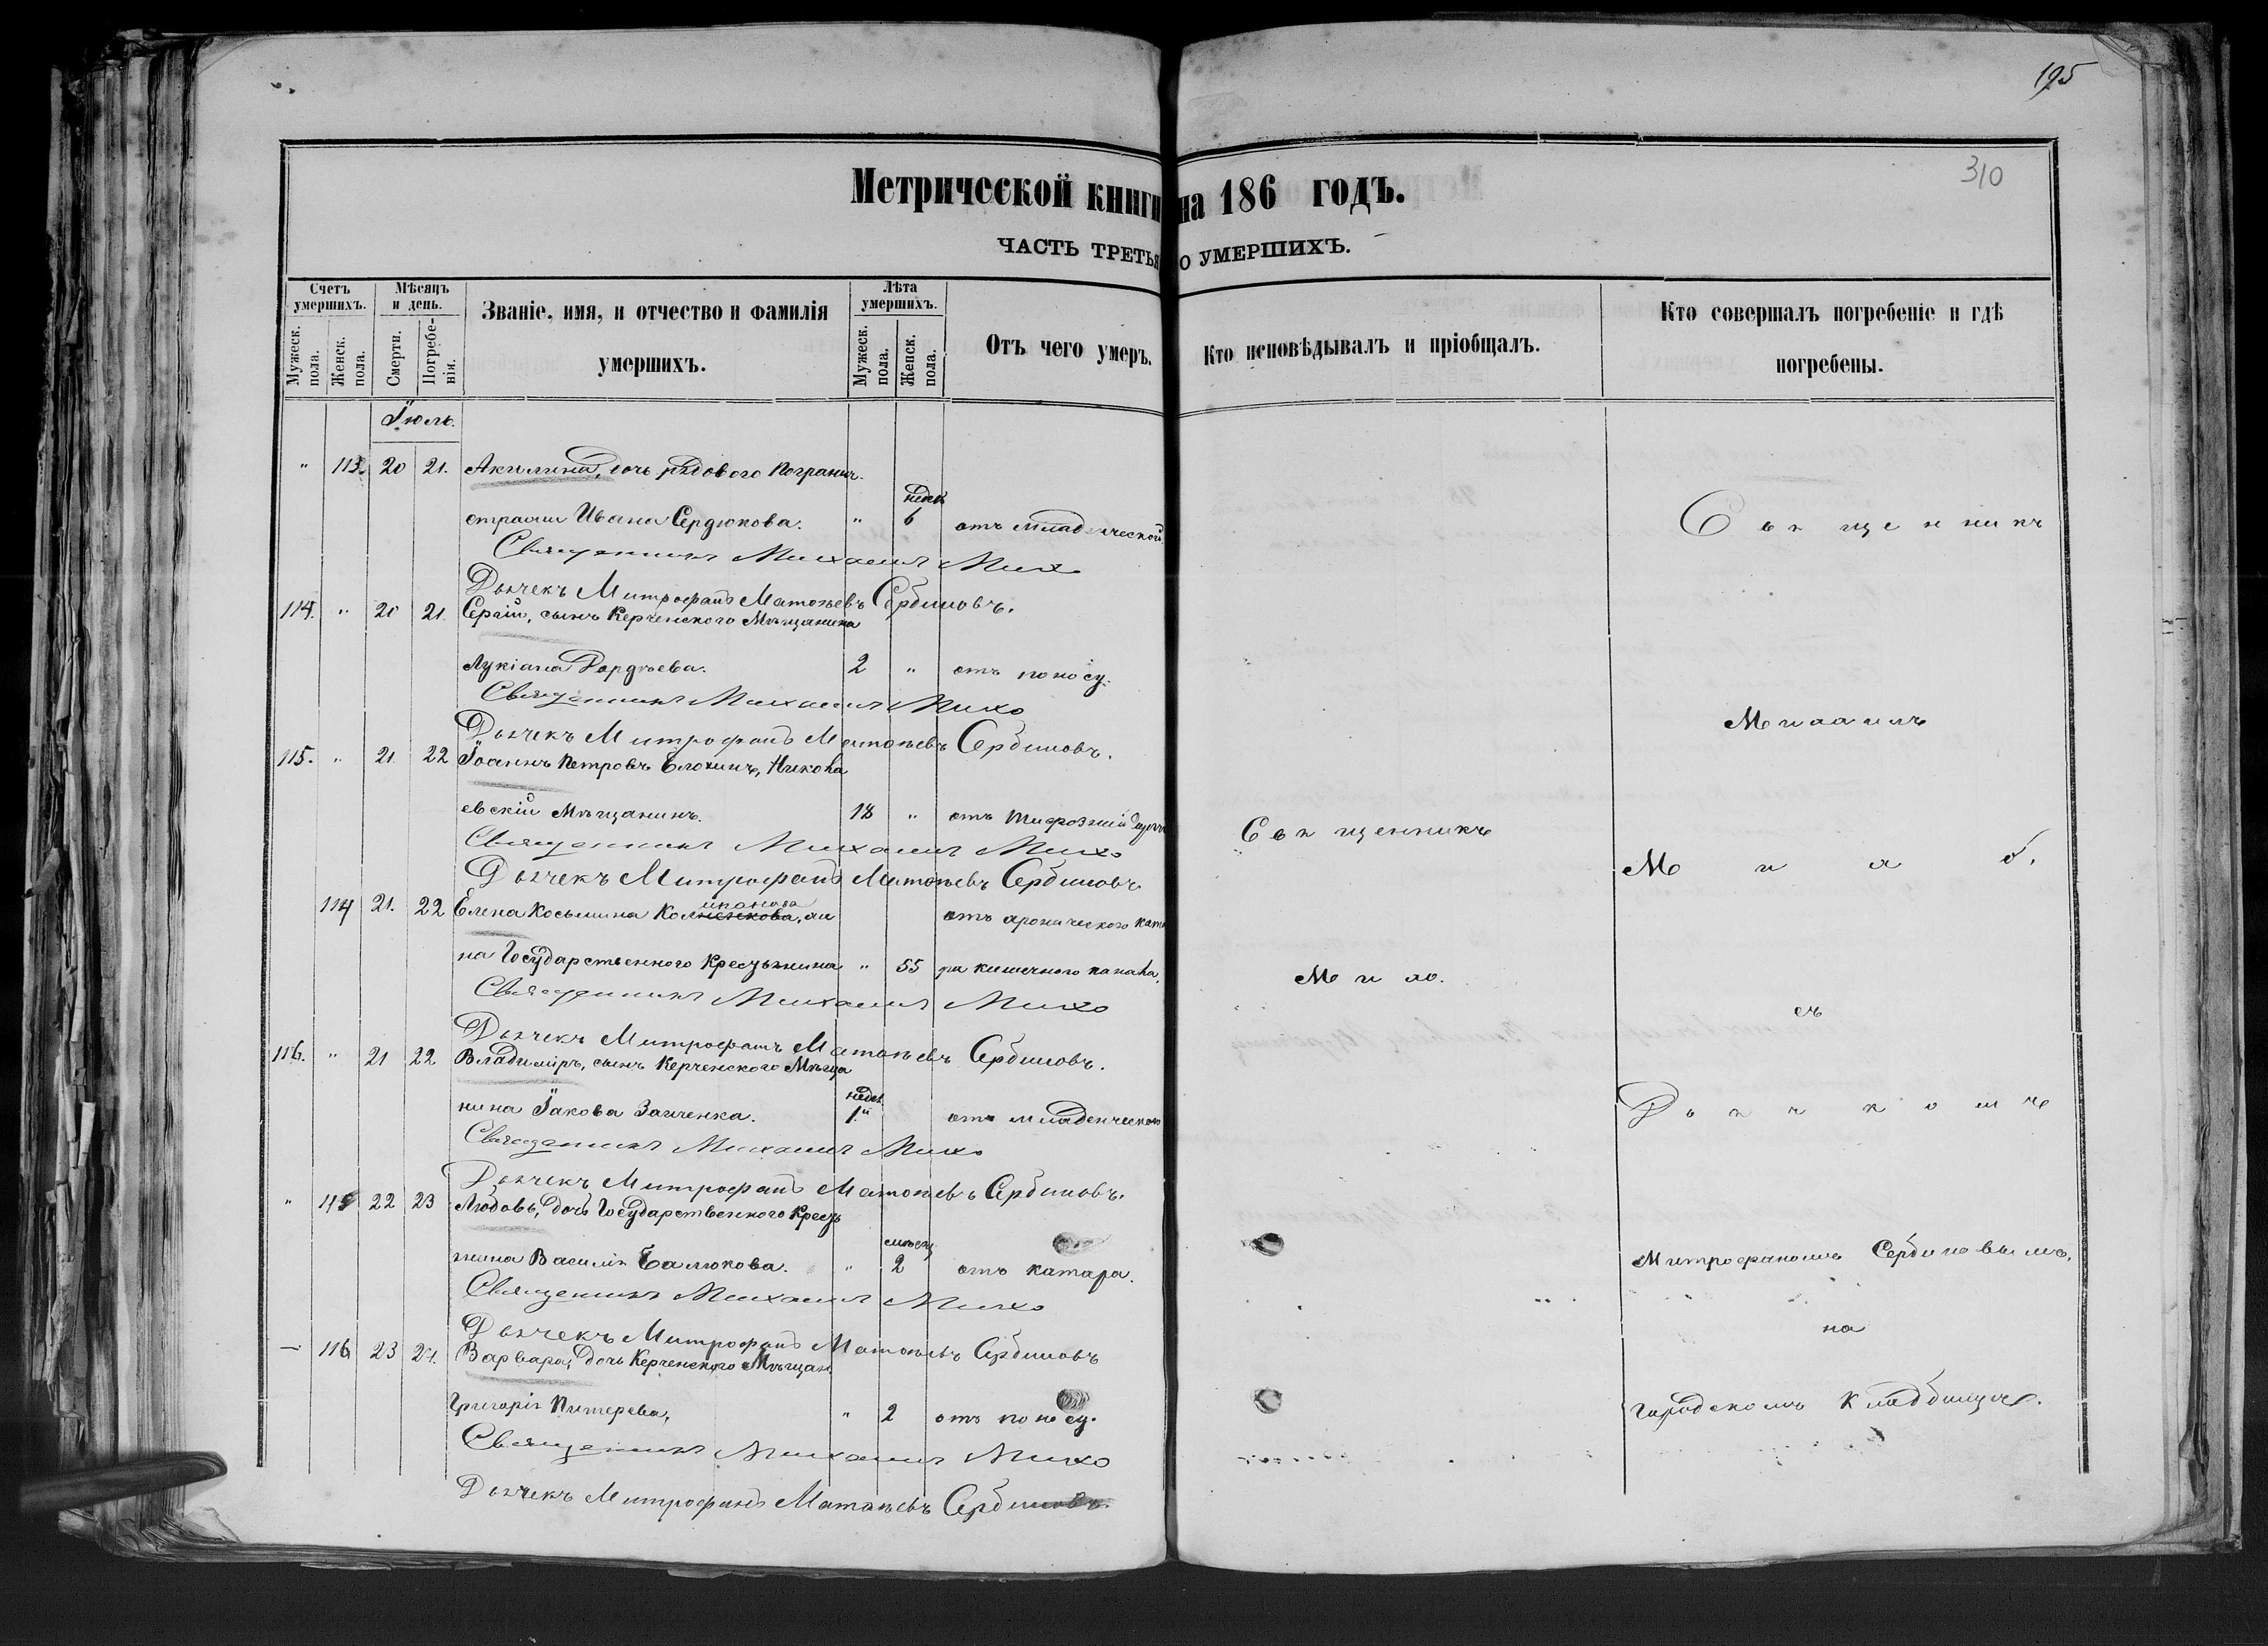 195
310
Метрической книги на 186 годъ.
ЧАСТЬ ТРЕТЬЯ О УМЕРШИХЪ.
Счетъ умершихъ.
Мужеск. пола.
Женск. пола.
Мѣсяцъ и день.
Смерти.
Погребенія.
Званіе, имя, и отчество и фамилія умершихъ.
Лѣта умершихъ.
Мужеск. пола.
Женск. пола.
Отъ чего умеръ.
Кто исповѣдывалъ и пріобщалъ.
Кто совершалъ погребеніе и гдѣ погребены.
Іюль.
" 113. 20 21. Акилина, дочь рядового погранич.
стражи Ивана Сердюкова. " недѣл 6 отъ младенческой.
Священникъ Михаилъ Михо
Дьячекъ Митрофанъ Матвѣевъ Сербиновъ.
114. " 20 21. Сергій, сынъ Керченского Мѣщанина
Лукіана Гордѣева. 2 " отъ поносу.
Священникъ Михаилъ Михо
Дьячекъ Митрофанъ Матвѣевъ Сербиновъ.
115. " 21. 22 Іоаннъ Петровъ Блохинъ, Никола
евскій Мѣщанинъ. 18 " отъ тифозной
Священникъ Михаилъ Михо
Дьячекъ Митрофанъ Матвѣевъ Сербиновъ
114 21. 22 Елена Косьмина, же отъ хроническаго ката
на Государственного Крестьянина " 55 ра кишечного канала.
Священникъ Михаилъ Михо
Дьячекъ Митрофанъ Матвѣевъ Сербиновъ.
116. " 21 22 Владиміръ, сынъ Керченского Мѣща
нина Іакова Заиченка. недѣл 1. " отъ младенческой
Священникъ Михаилъ Михо
Дьячекъ Митрофанъ Матвѣевъ Сербиновъ.
" 115 22 23 Любовь, дочь Государственного Крест
янина Василія Балюкова. " мѣсяц 2 отъ катара.
Священникъ Михаилъ Михо
Дьячекъ Митрофанъ Матвѣевъ Сербиновъ
— 116 23 24. Варвара, дочь Керченского Мѣщан.
Григорія Питерева, " 2 отъ поносу.
Священникъ Михаилъ Михо
Дьячекъ Митрофанъ Матвѣевъ Сербиновъ.
Священникъ
Михо.
Священникъ
Михаилъ
Михо
съ
Дьячкомъ
Митрофаномъ Сербиновымъ,
на
городскомъ Кладбищѣ.